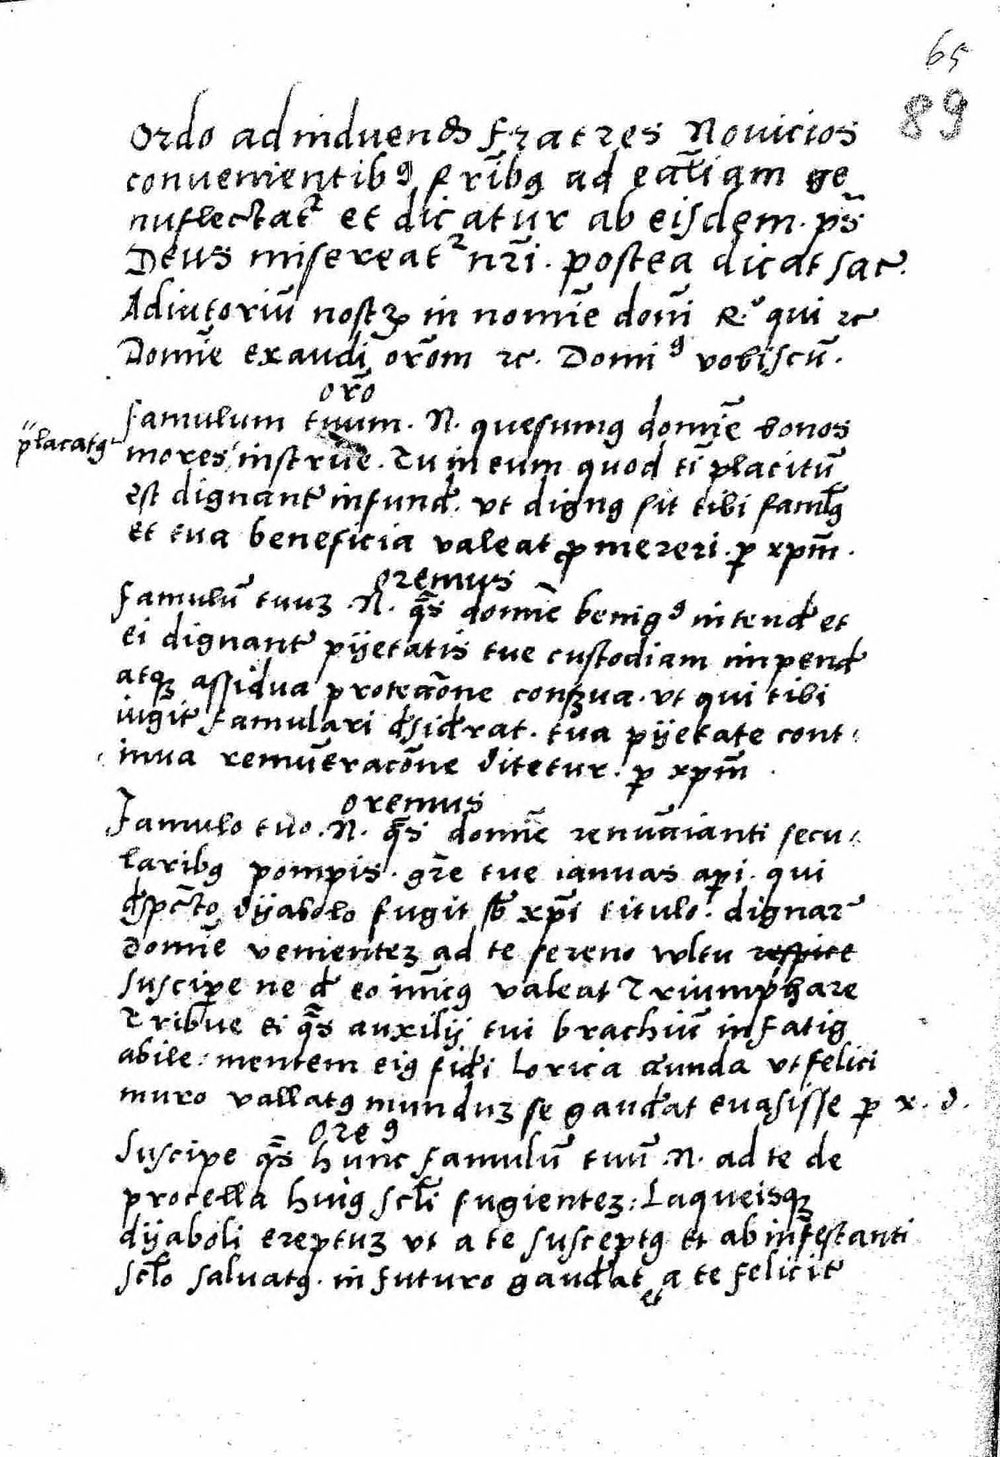 65
89
Ordo ad induendos fratres Novicios
convenientibꝰ fr̄ibꝫ ad ecc̄liam ge
nuflectatᷣ et dicatur ab eisdem. ps̄
Deus misereatᷣ nr̄i. postea dicat sac̄.
Adiutoriū nostꝝ in nomīe domī ℟. qui ⁊c
Domīe exaudi or̄om ⁊c. Domiꝰ vobiscū.
or̄o
famulum tuum. N. quesumꝰ domīe bonos
placatꝰ
mores instrūe. Tu in eum quod ti placitū
est dignant̄ infund̄. vt dignꝰ sit tibi famlꝰ
et tua beneficia valeat ꝓmereri. ꝑ xp̄m.
oremus
famulū tuuꝫ .N. qs̄ domīe benigꝰ intend̄ et
ei dignant̄ pijetatis tue custodiam impend̄
atqꝫ assidua protectōne conẜua. vt qui tibi
iugit̄ famulari d̄sid̄rat. tua pijetate cont
inua remūeracōne ditetur. ꝑ xp̄m
oremus
famulo tuo. N. qs̄ domīe renūcianti secu
laribꝫ pompis. gr̄e tue ianuas apͥi. qui
d̄spc̄to dijabolo fugit sb̄ xp̄i titulo. dignar̄
domīe venienteꝫ ad te sereno wltu respice
suscipe ne d̄ eo im̄icꝰ valeat Triumphare
Tribue ei qs̄ auxilij tui brachiū infatig
abile: mentem eiꝰ fid̄i lorica c̄unda vt felici
muro vallatꝰ munduꝫ se gaud̄at euasisse ꝑ x. d.
oreꝰ
Suscipe qs̄ hunc famulū tuū .N. ad te de
procella huiꝰ scl̄i fugienteꝫ: Laqueisqꝫ
dijaboli ereptuꝫ vt a te susceptꝰ et ab infestanti
scl̄o saluatꝰ. in futuro gaud̄at a te felicit̄